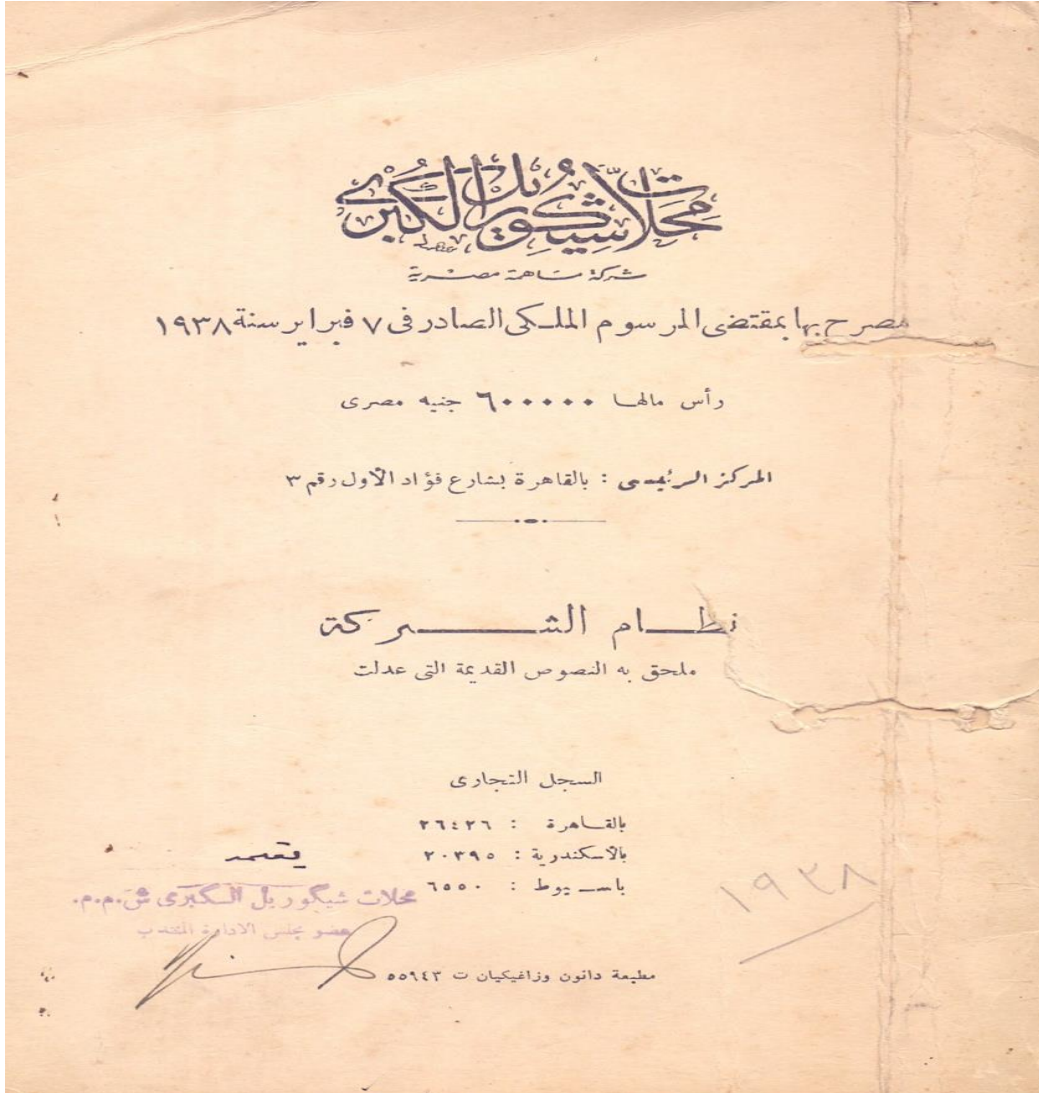 محلات شيكوريل الكبرى
شركة مساهمة مصرية
مصرح بها بمقتضى المرسوم الملكى الصادر فى ٧ فبراير سنة ١٩٣٨
رأس مالها ٦٠٠٠٠٠ جنيه مصرى
المركز الرئيسى : بالقاهرة بشارع فؤاد الأول رقم ٣
نظام الشركة
ملحق به النصوص القديمة التى عدلت
السجل التجارى
بالقاهرة : ٢٦٤٢٦
بالاسكندرية : ٢٠٣٩٥
باسيوط : ٦٥٥٠
يعتمد
محلات شيكوريل الكبرى ش.م.م.
عضو مجلس الادارة المنتدب
١٩٣٨
مطبعة دانون وزاغيكيان ت ٥٥٩٤٣